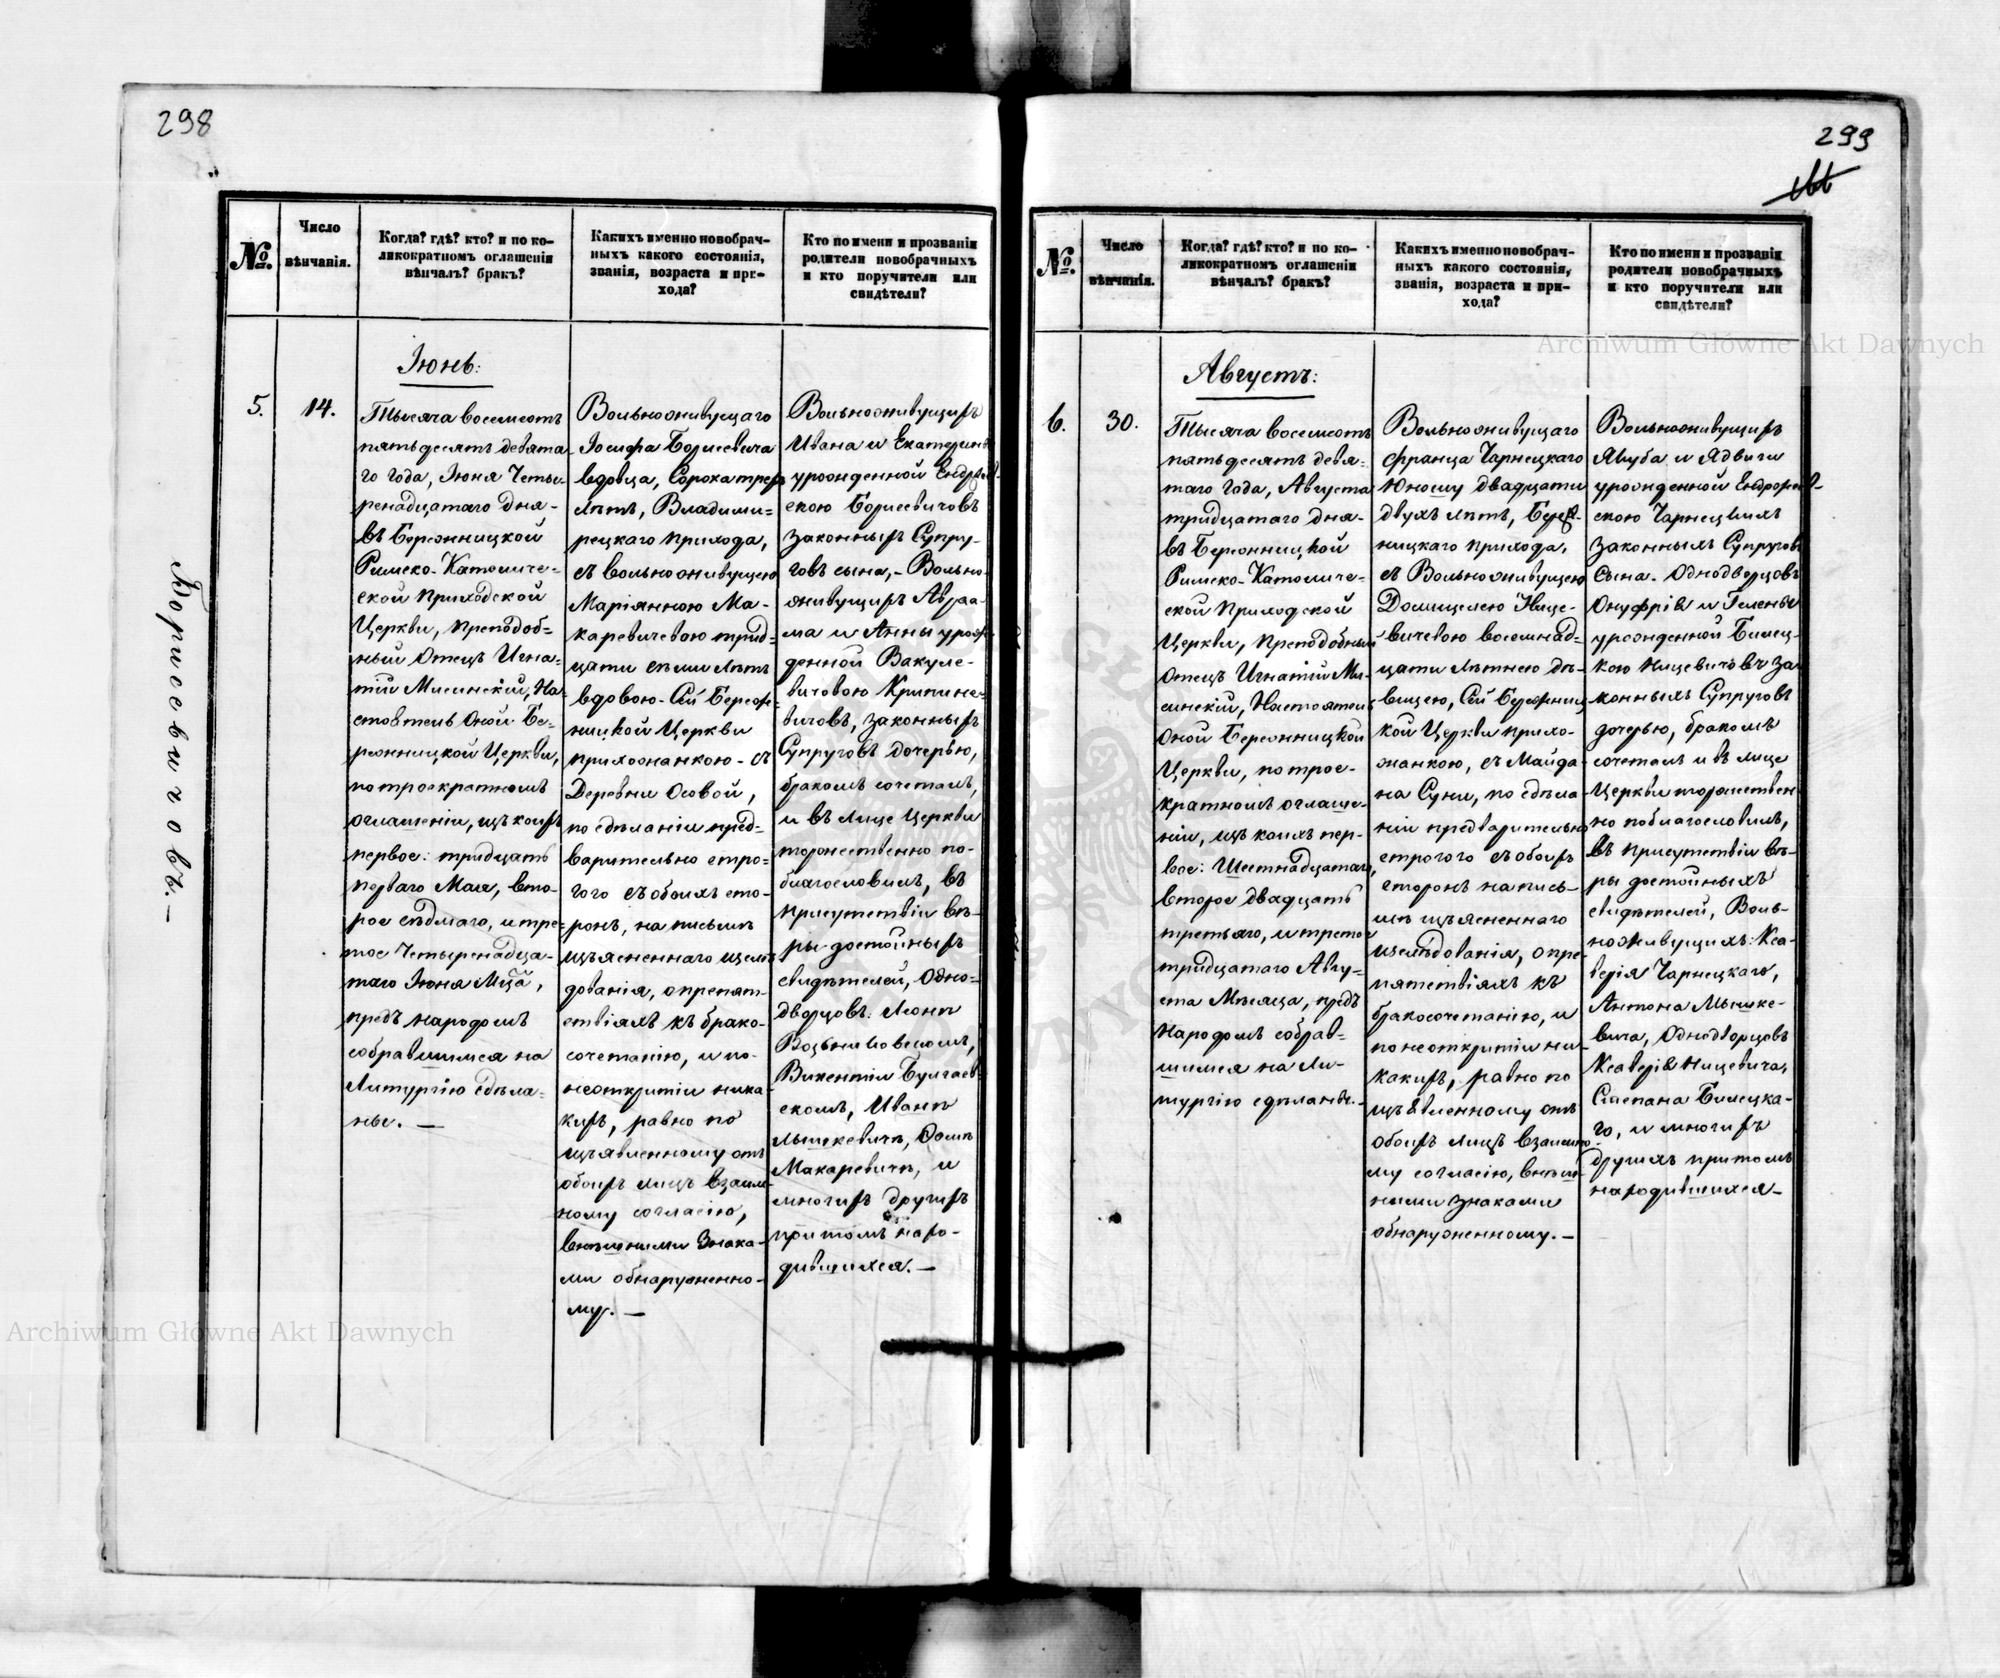 298
№
Число
вѣнчанія.
Когда? гдѣ? кто? и по ко-
ликократномъ оглашеніи
вѣнчалъ? бракъ?
Какихъ именно новобрач-
ныхъ какого состоянія,
званія, возраста и при-
хода?
Кто по имени и прозванію
родители новобрачныхъ
и кто поручители или
свидѣтели?
Борисевичовъ.—
Іюнь:
5.
14.
Тысяча восемсотъ
пятьдесятъ девята-
го года, Іюня Четы-
ренадцатаго дня-
въ Бережницкой
Римско-Католиче-
ской приходской
Церкви, преподоб-
ный Отецъ Игна-
тій Мисинскій, На-
стоятель Оной Бе-
режницкой Церкви,
по троекратномъ
оглашеніи, изъ коихъ
первое: тридцать
перваго Мая, вто-
рое седмаго, и тре-
тое Четыренадца-
таго Іюня Мца,
предъ народомъ
собравшимся на
Литургію сдѣла-
ны. —
Вольноживущаго
Іосифа Борисевича
вдовца, Сорока трехъ
лѣтъ, Владими-
рецкаго прихода,
съ вольноживущею
Маріянною Ма-
каревичевою трид-
цати семи лѣтъ
вдовою - Сей Береж-
ницкой Церкви
прихожанкою - съ
Деревни Осовой,
по сдѣланіи пред-
варительно стро-
гого съ обоихъ сто-
ронъ, на письмѣ
изъясненнаго изслѣ-
дованія, о препят-
ствіяхъ къ брако-
сочетанію, и по-
неоткрытіи ника-
кихъ, равно по
изъявленному отъ
обоихъ лицъ взаим-
ному согласію,
внѣшними Знака-
ми обнаруженно-
му. —
Вольноживущихъ
Ивана и Екатерины
урожденной Ендржеев-
скою Борисевичовъ
законныхъ Супру-
говъ сына, - Вольно-
живущихъ Авраа-
ма и Анны урож-
денной Вакуле-
вичовою
законныхъ
Супруговъ дочерью,
бракомъ сочеталъ,
и въ лице Церкви
торжественно по-
благословилъ, въ
присутствіи вѣ-
ры достойныхъ
свидѣтелей, Одно-
дворцовъ: Леонѣ
Викентіи
скомъ, Иванѣ
Мышкевичѣ,
Макаревичѣ, и
многихъ другихъ
при томъ наро-
дившихся. —
299
№
Число
вѣнчанія.
Когда? гдѣ? кто? и по ко-
ликократномъ оглашеніи
вѣнчалъ? бракъ?
Какихъ именно новобрач-
ныхъ какого состоянія,
званія, возраста и при-
хода?
Кто по имени и прозванію
родители новобрачныхъ
и кто поручители или
свидѣтели?
Августъ:
6.
30.
Тысяча восемсотъ
пятьдесятъ девя-
таго Года, Августа
тридцатаго дня-
въ Бережницкой
Римско-Католиче-
ской приходской
Церкви, преподобный
Отецъ Игнатій Ми-
синскій, Настоятель
Оной Бережницкой
Церкви, по трое-
кратномъ оглаше-
ніи, изъ коихъ пер-
вое: Шестнадцатаго,
второе двадцать
третьяго, и третое
тридцатаго Авгу-
ста Мѣсяца, предъ
Народомъ собрав-
шимся на Ли-
тургію сдѣланы. -
Вольноживущаго
Франца Чарнецкаго
Юношу двадцати
двухъ лѣтъ, Береж-
ницкаго прихода,
съ Вольноживущею
Домицелею Ницe-
вичевою восемнад-
цати лѣтнею дѣ-
вицею, Сей Бережниц-
кой Церкви прихо-
жанкою, съ Майда-
на Суни, по сдѣла-
ніи предварительно
строгого съ обоихъ
сторонъ на пись-
мѣ изъясненнаго
изслѣдованія, о пре-
пятствіяхъ къ
бракосочетанію, и
по неоткрытіи ни-
какихъ, равно по
изъявленному отъ
обоихъ лицъ взаимно-
му согласію, внѣш-
ними знаками
обнаруженному. —
Вольноживущихъ
Якуба и Ядвиги
урожденной Ендржеев-
скою Чарнецкихъ
законныхъ Супруговъ
Сына. Однодворцовъ
Онуфрія и Гелены
урожденной Билец-
кою Ницевичовъ за-
конныхъ Супруговъ
дочерью, бракомъ
сочеталъ и въ лице
Церкви торжествен-
но поблагословилъ,
въ присутствіи вѣ-
ры достойныхъ
свидѣтелей, Воль-
ноживущихъ: Кса-
верія Чарнецкаго,
Антона Мышке-
вича, Однодворцовъ
Ксаверія Ницевича,
Степана Билецка-
го, и многихъ
другихъ притомъ
народившихся —
Archiwum Główne Akt Dawnych
Archiwum Główne Akt Dawnych